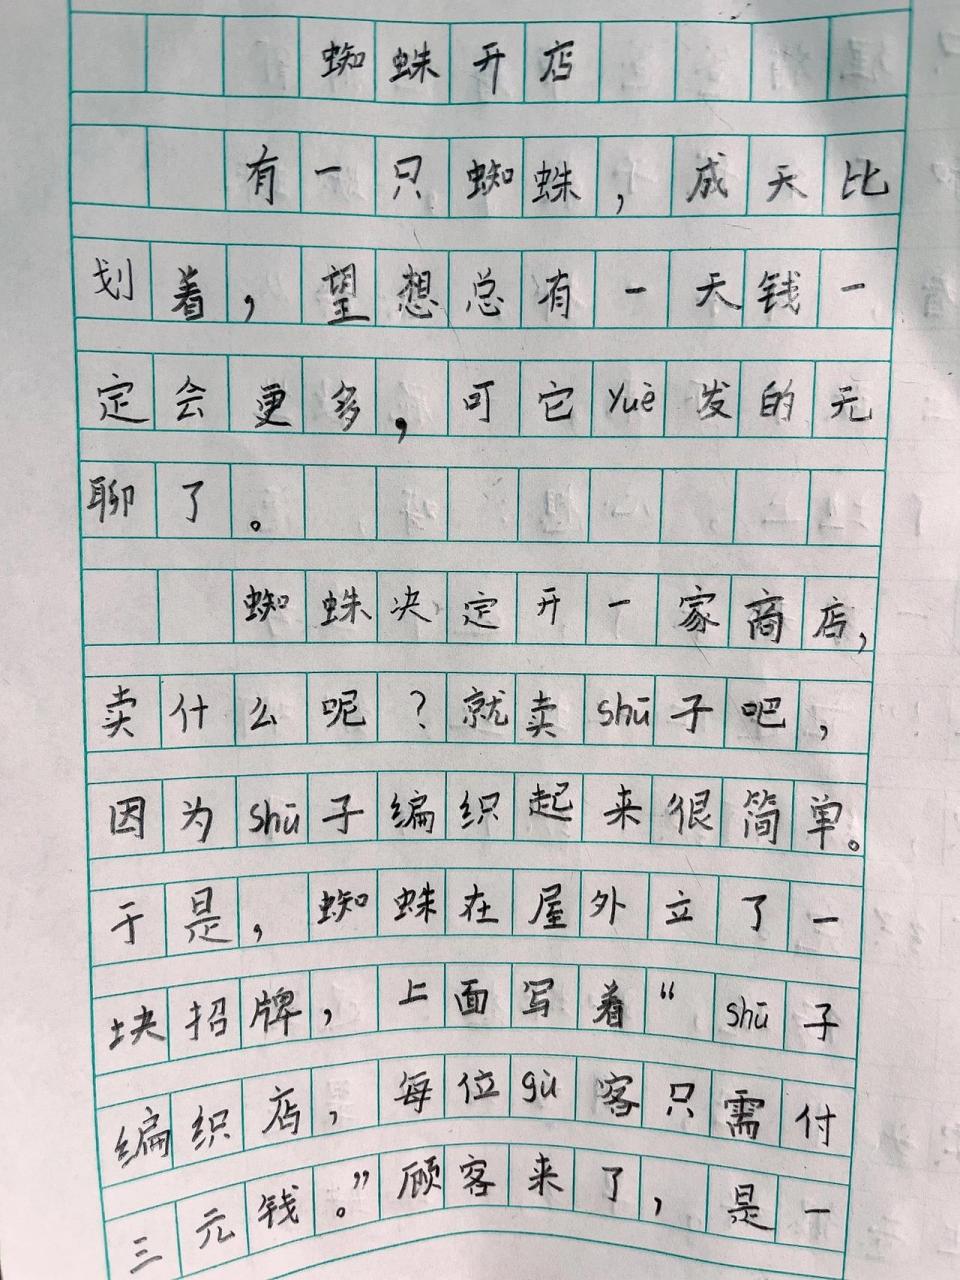 蜘蛛开店
有一只蜘蛛，成天比
划着，望想总有一天钱一
定会更多，可它yuè发的无
聊了。
蜘蛛决定开一家商店，
卖什么呢？就卖shū子吧，
因为shū子编织起来很简单。
于是，蜘蛛在屋外立了一
块招牌，上面写着“shū子
编织店，每位gù客只需付
三元钱。”顾客来了，是一